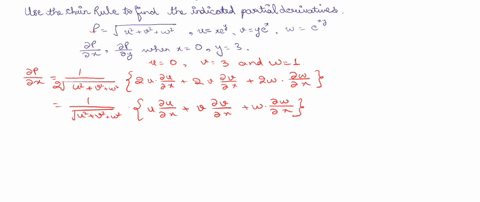 Use the chain Rule to find the indicated partial derivatives.
P = √(u²+v²+w²) , u = xe^y, v = ye^x, w = e^xy
∂P/∂x , ∂P/∂y when x = 0, y = 3.
u = 0, v = 3 and w = 1
∂P/∂x = 1/(2√(u²+v²+w²)) {2u ∂u/∂x + 2v ∂v/∂x + 2w · ∂w/∂x}
= 1/√(u²+v²+w²) · {u ∂u/∂x + v ∂v/∂x + w · ∂w/∂x}